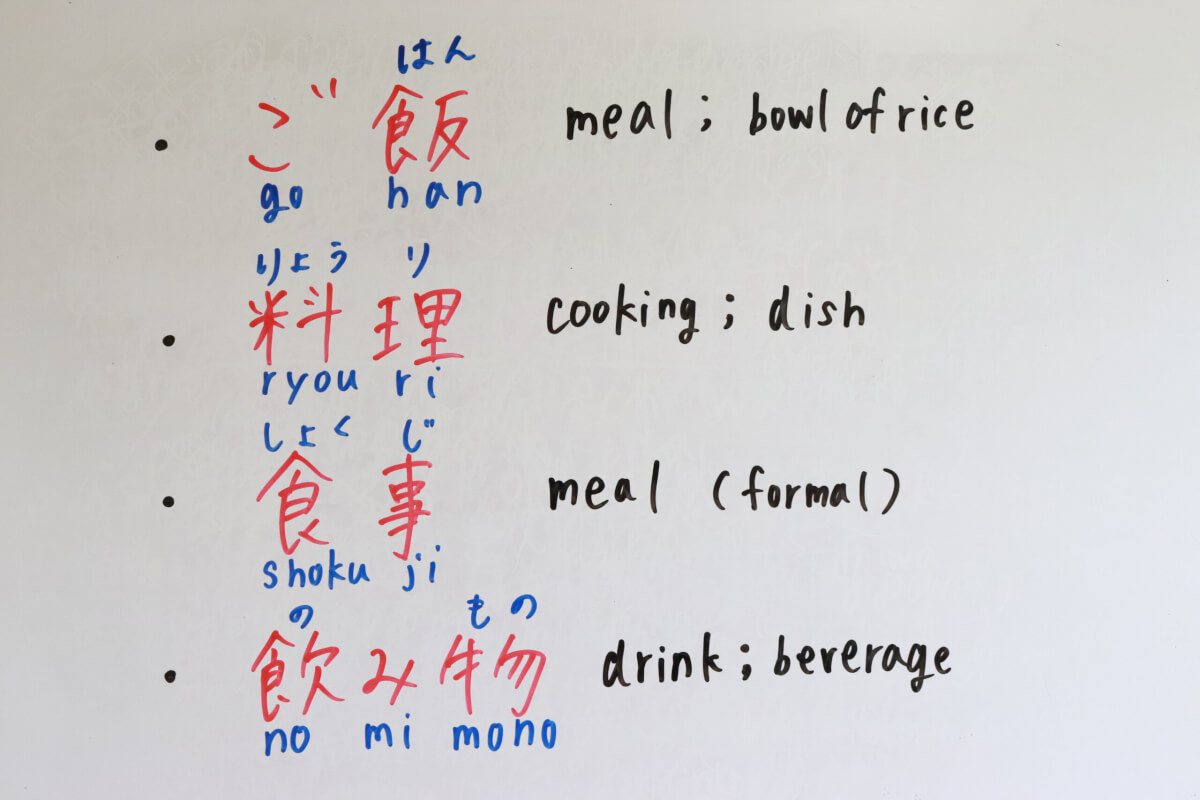 はん
• ご飯 meal ; bowl of rice
go han
りょう り
• 料理 cooking ; dish
ryou ri
しょく じ
• 食事 meal (formal)
shoku ji
の もの
• 飲み物 drink ; beverage
no mi mono